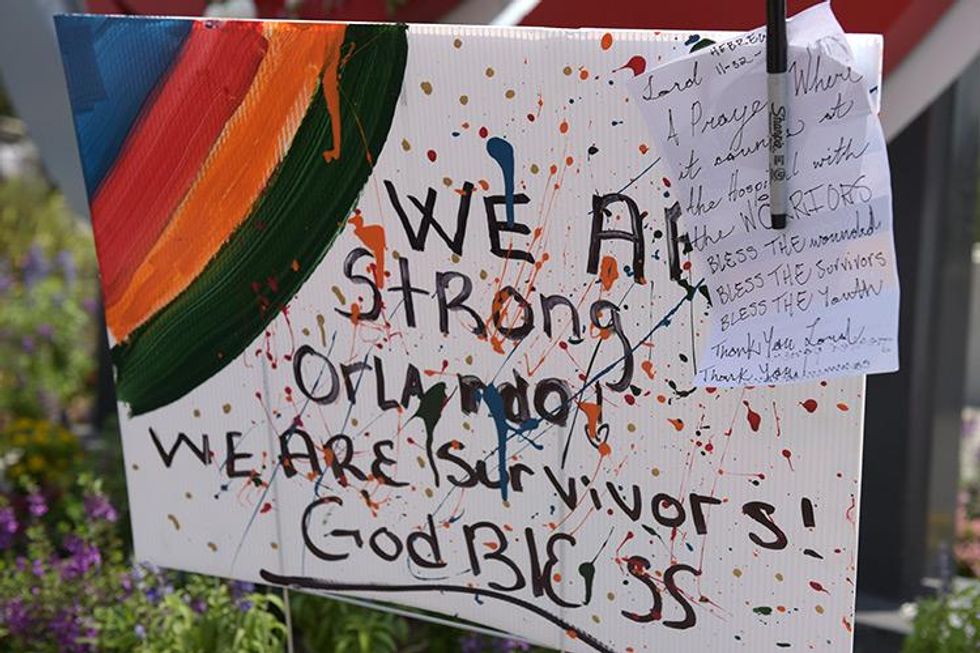 WE AR
Strong
Orlando!
WE ARE Survivors!
God BlESS
HEBREW
11-32-
Lord Where
A Prayer
it counts at
the Hospital with
the WARRIORS
BLESS THE wounded
BLESS THE Survivors
BLESS THE Youth
Thank You Lord
Thank You!
Sharpie